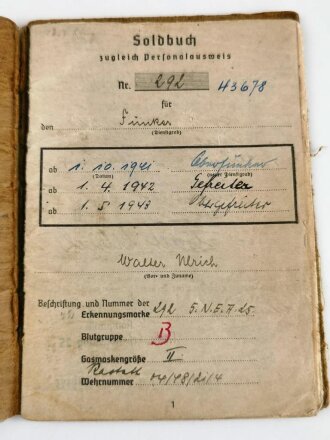 Soldbuch
zugleich Personalausweis
Nr. 292 43678
für
den Funker
(Dienstgrad)
ab 1. 10. 1941 Oberfunker
(Datum) (neuer Dienstgrad)
ab 1. 4. 1942 Gefreiter
ab 1. 5 1943 Obergefreiter
Walter Ulrich
(Vor- und Zuname)
Beschriftung und Nummer der
Erkennungsmarke 292 5. N.E.A. 25
Blutgruppe B
Gasmaskengröße II
Rastatt
Wehrnummer 04/48/21/4
1